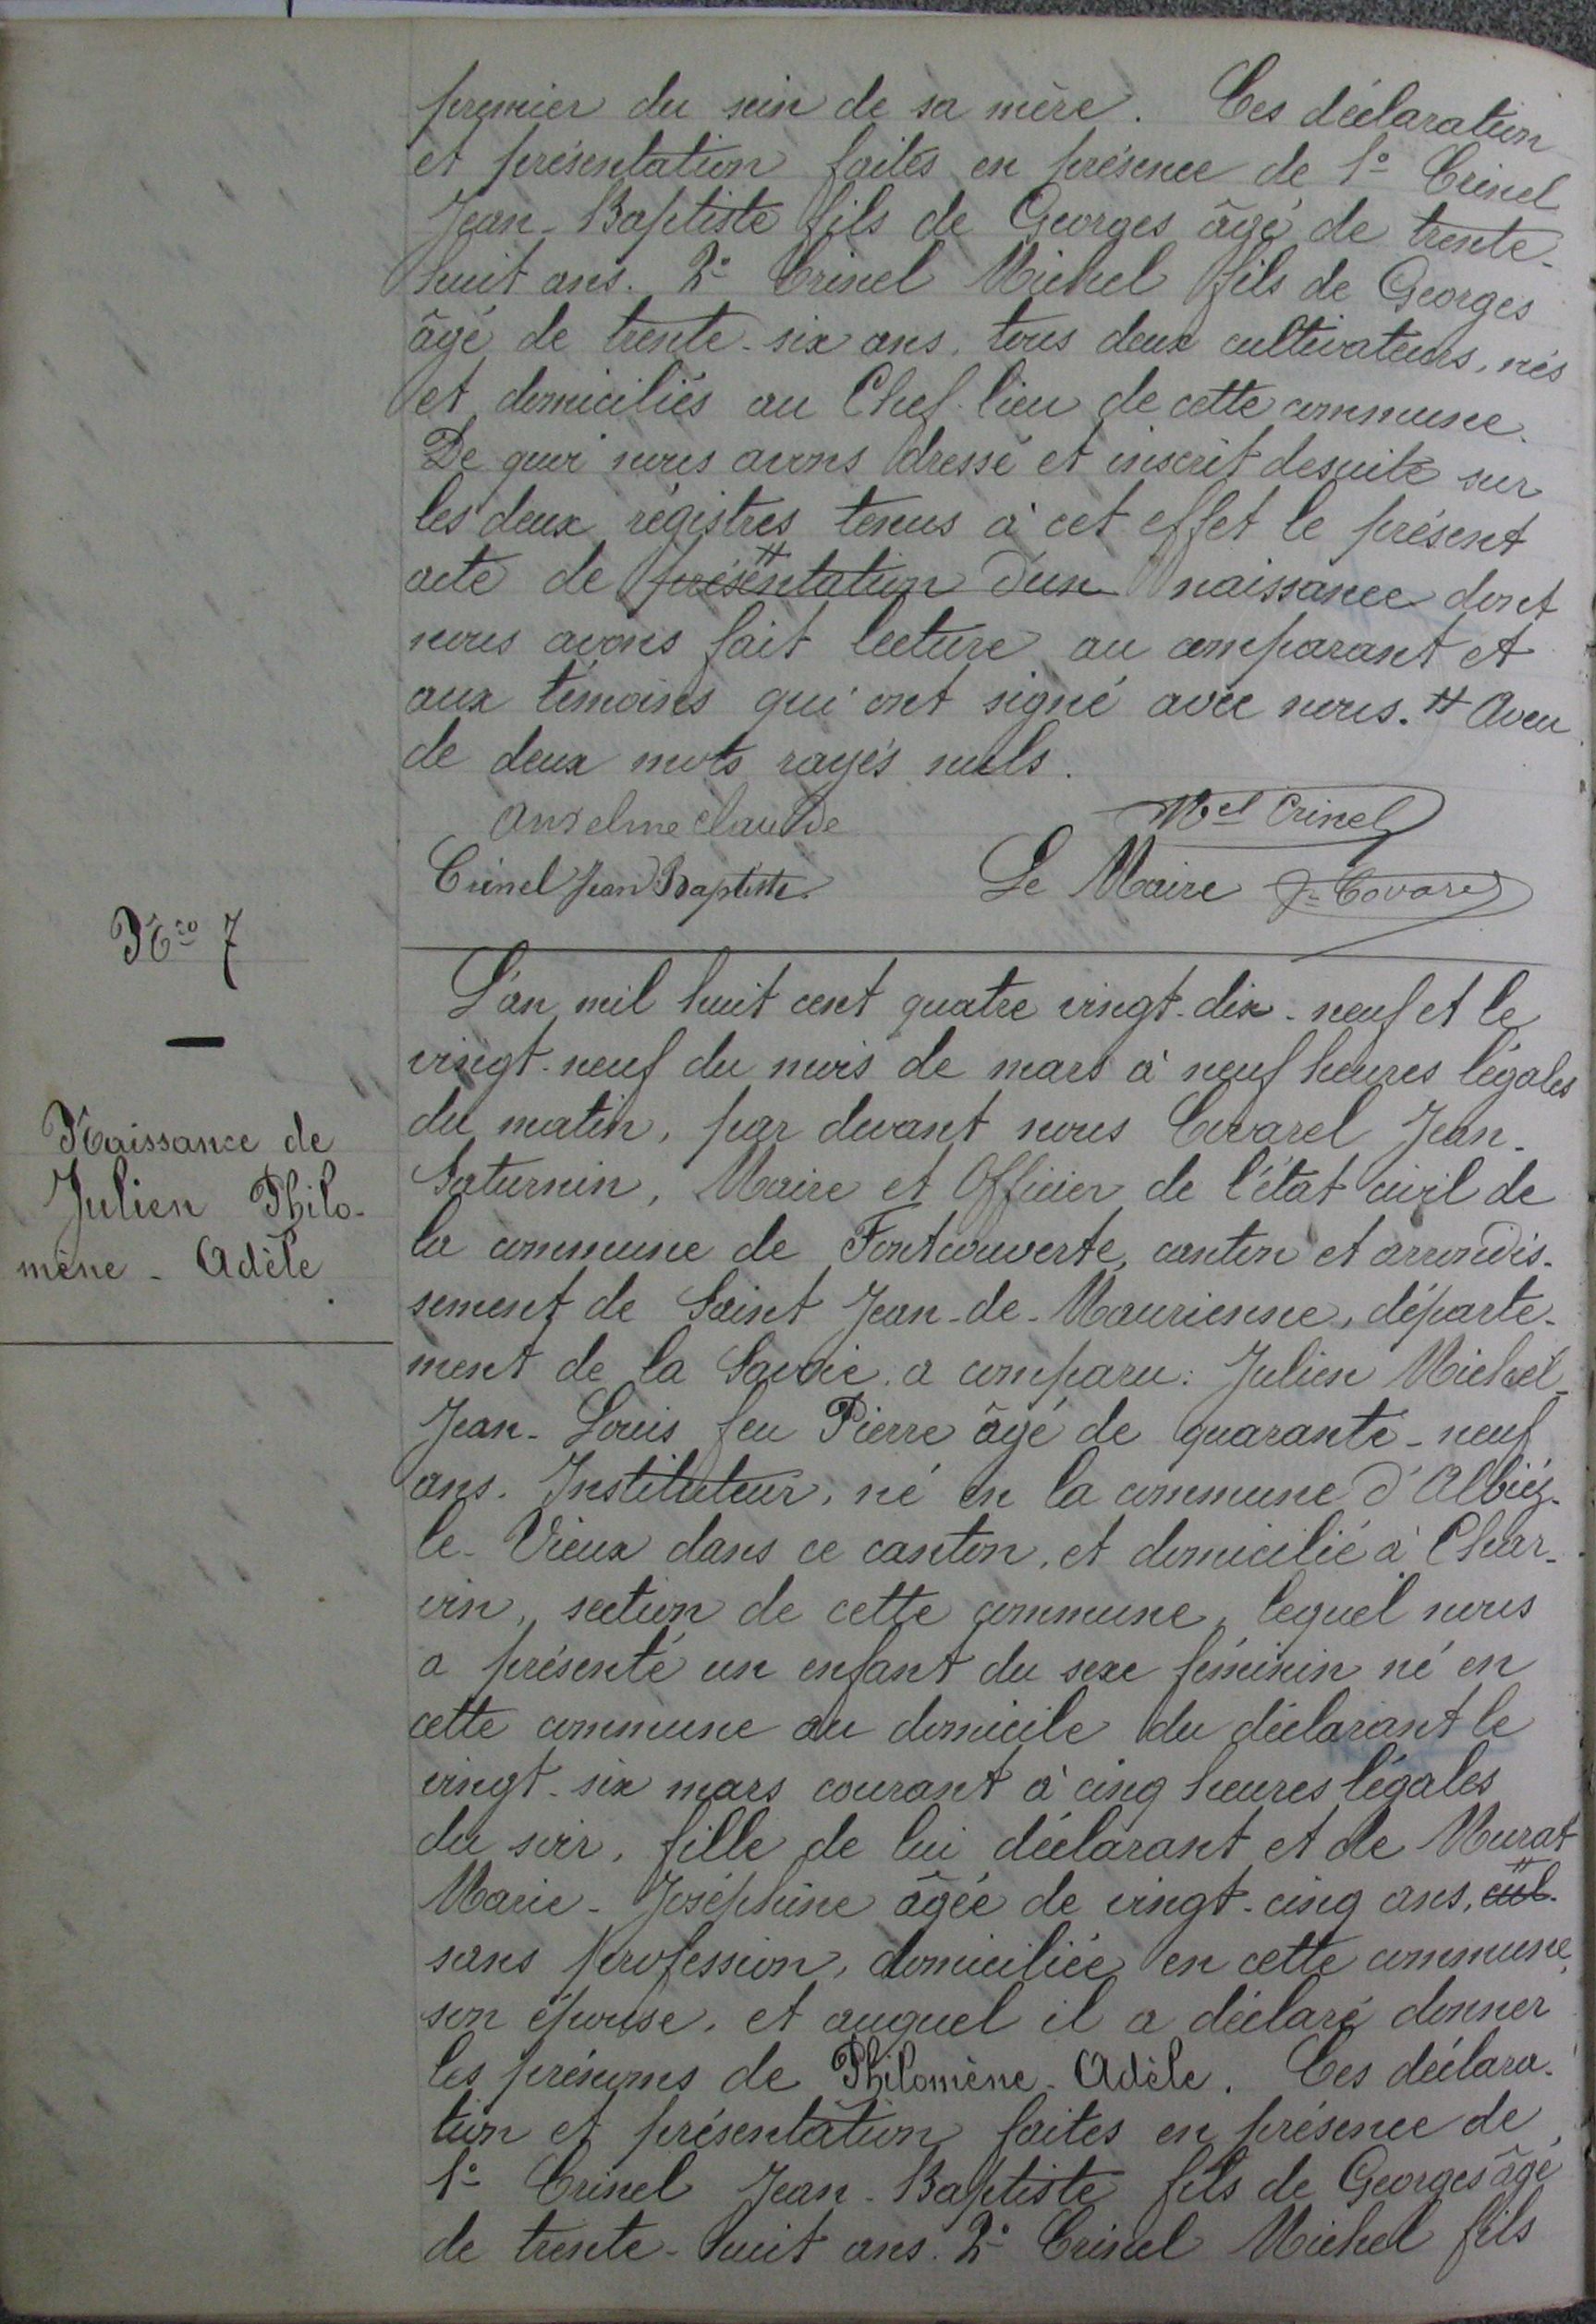 premier du sein de sa mère. Ces déclaration
et présentation faites en présence de 1º Crinel
Jean-Baptiste fils de Georges âgé de trente-
huit ans. 2º Crinel Michel fils de Georges
âgé de trente-six ans, tous deux cultivateurs, nés
et domiciliés au Chef-lieu de cette commune.
De quoi nous avons dressé et inscrit desuite sur
les deux régistres tenus à cet effet le présent
acte de présentation d'un naissance dont
nous avons fait lecture au comparant et
aux témoins qui ont signé avec nous. # Aveu
de deux mots rayés nuls.
Anselme Claude
Mel Crinel
Crinel Jean Baptiste
Le Maire J. Covarel
Nro 7
Naissance de
Julien Philo-
mène - Adèle
L'an mil huit cent quatre vingt-dix-neuf et le
vingt-neuf du mois de mars à neuf heures légales
du matin, par devant nous Covarel Jean-
Saturnin, Maire et Officier de l'état civil de
la commune de Fontcouverte, canton et arrondis-
sement de Saint Jean-de-Maurienne, départe-
ment de la Savoie, a comparu: Julien Michel-
Jean-Louis feu Pierre âgé de quarante-neuf
ans. Instituteur, né en la commune d'Albiéz-
le-Vieux dans ce canton, et domicilié à Char-
vin, section de cette commune, lequel nous
a présenté un enfant du sexe féminin né en
cette commune au domicile du déclarant le
vingt-six mars courant à cinq heures légales
du soir, fille de lui déclarant et de Murat
Marie-Joséphine âgée de vingt-cinq ans, cul-
sans profession, domiciliée en cette commune,
son épouse, et auquel il a déclaré donner
les prénoms de Philomène-Adèle. Ces déclara-
tion et présentation faites en présence de
1º Crinel Jean-Baptiste fils de Georges âgé
de trente-huit ans. 2º Crinel Michel fils